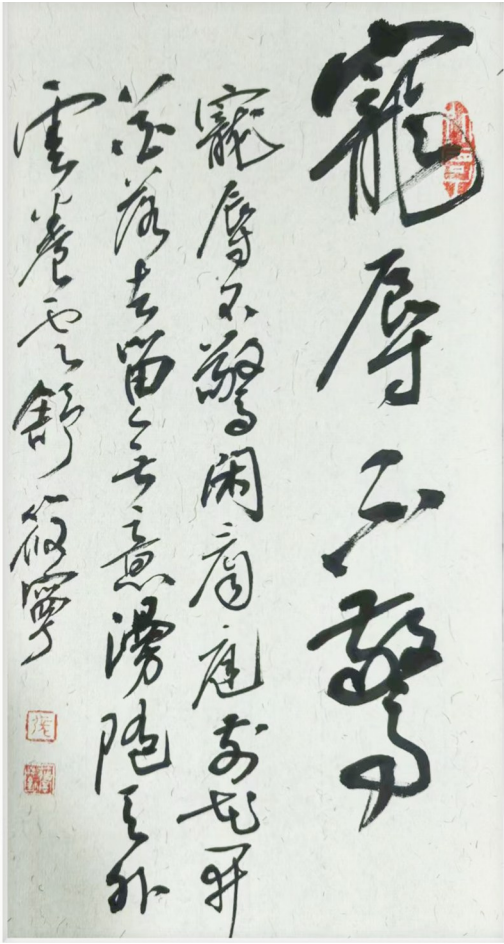 寵辱不驚
寵辱不驚闲看庭前花开
花落去留無意漫随天外
雲卷云舒筱寧